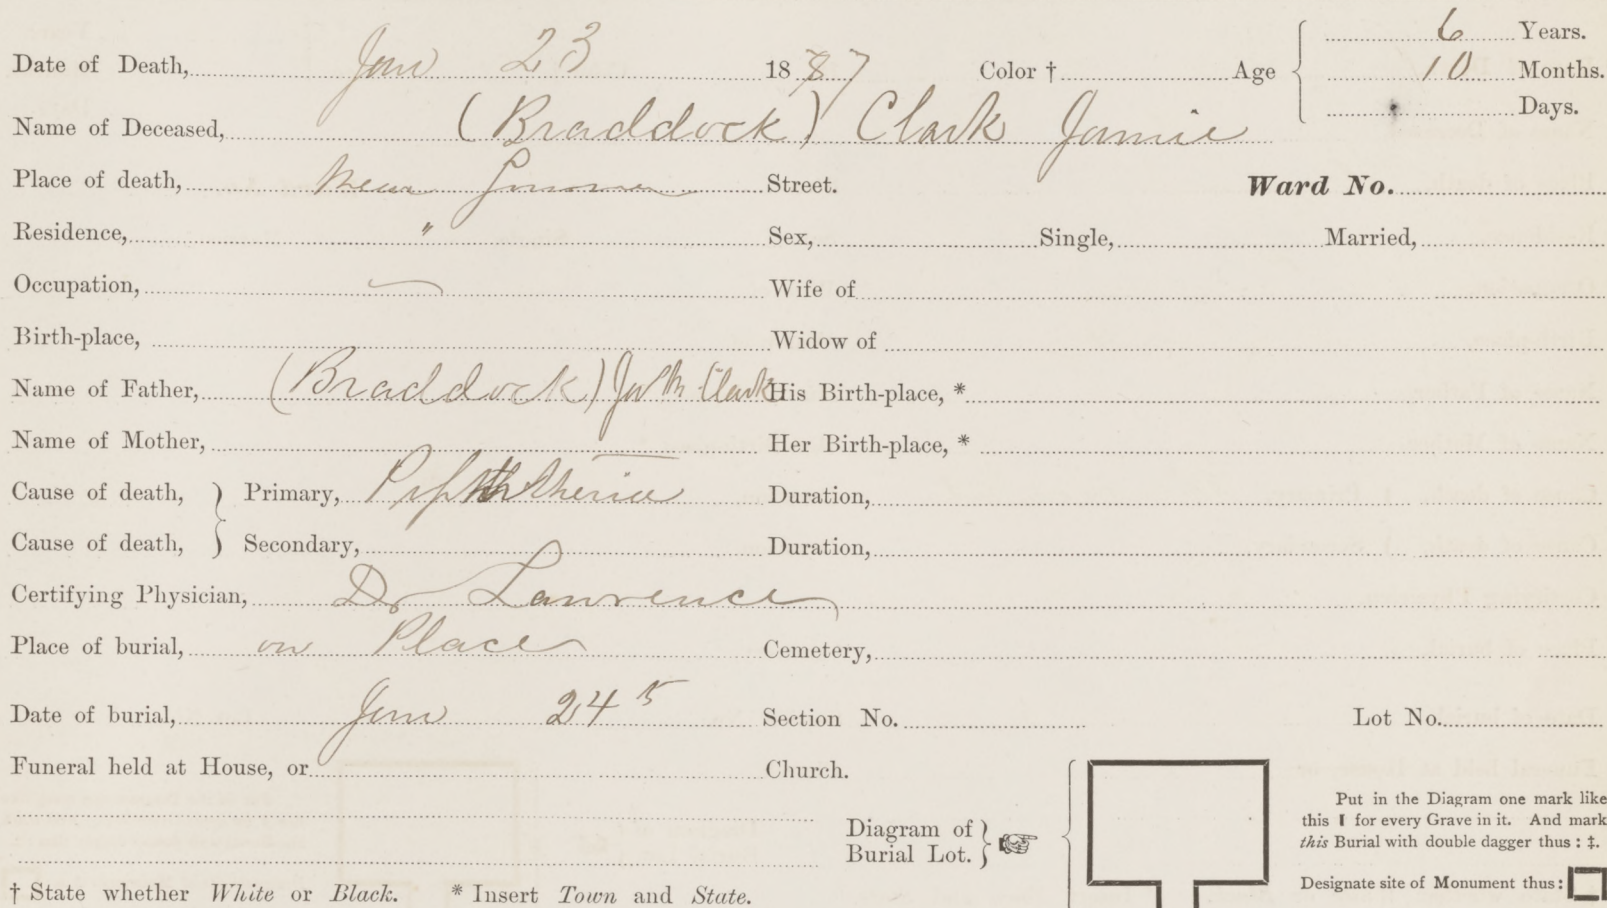 Date of Death, Jan 23 1887 Color † Age 6 Years.
10 Months.
Days.
Name of Deceased, (Braddock) Clark Jamie
Place of death, Near Street. Ward No.
Residence, " Sex, Single, Married,
Occupation, — Wife of
Birth-place, Widow of
Name of Father, (Braddock) Clark His Birth-place, *
Name of Mother, Her Birth-place, *
Cause of death, } Primary, Duration,
Cause of death, } Secondary, Duration,
Certifying Physician, Dr Lawrence
Place of burial, on Place Cemetery,
Date of burial, Jan 24 Section No. Lot No.
Funeral held at House, or Church.
Diagram of
Burial Lot. }
Put in the Diagram one mark like
this I for every Grave in it. And mark
this Burial with double dagger thus : ‡.
Designate site of Monument thus:
† State whether White or Black. * Insert Town and State.